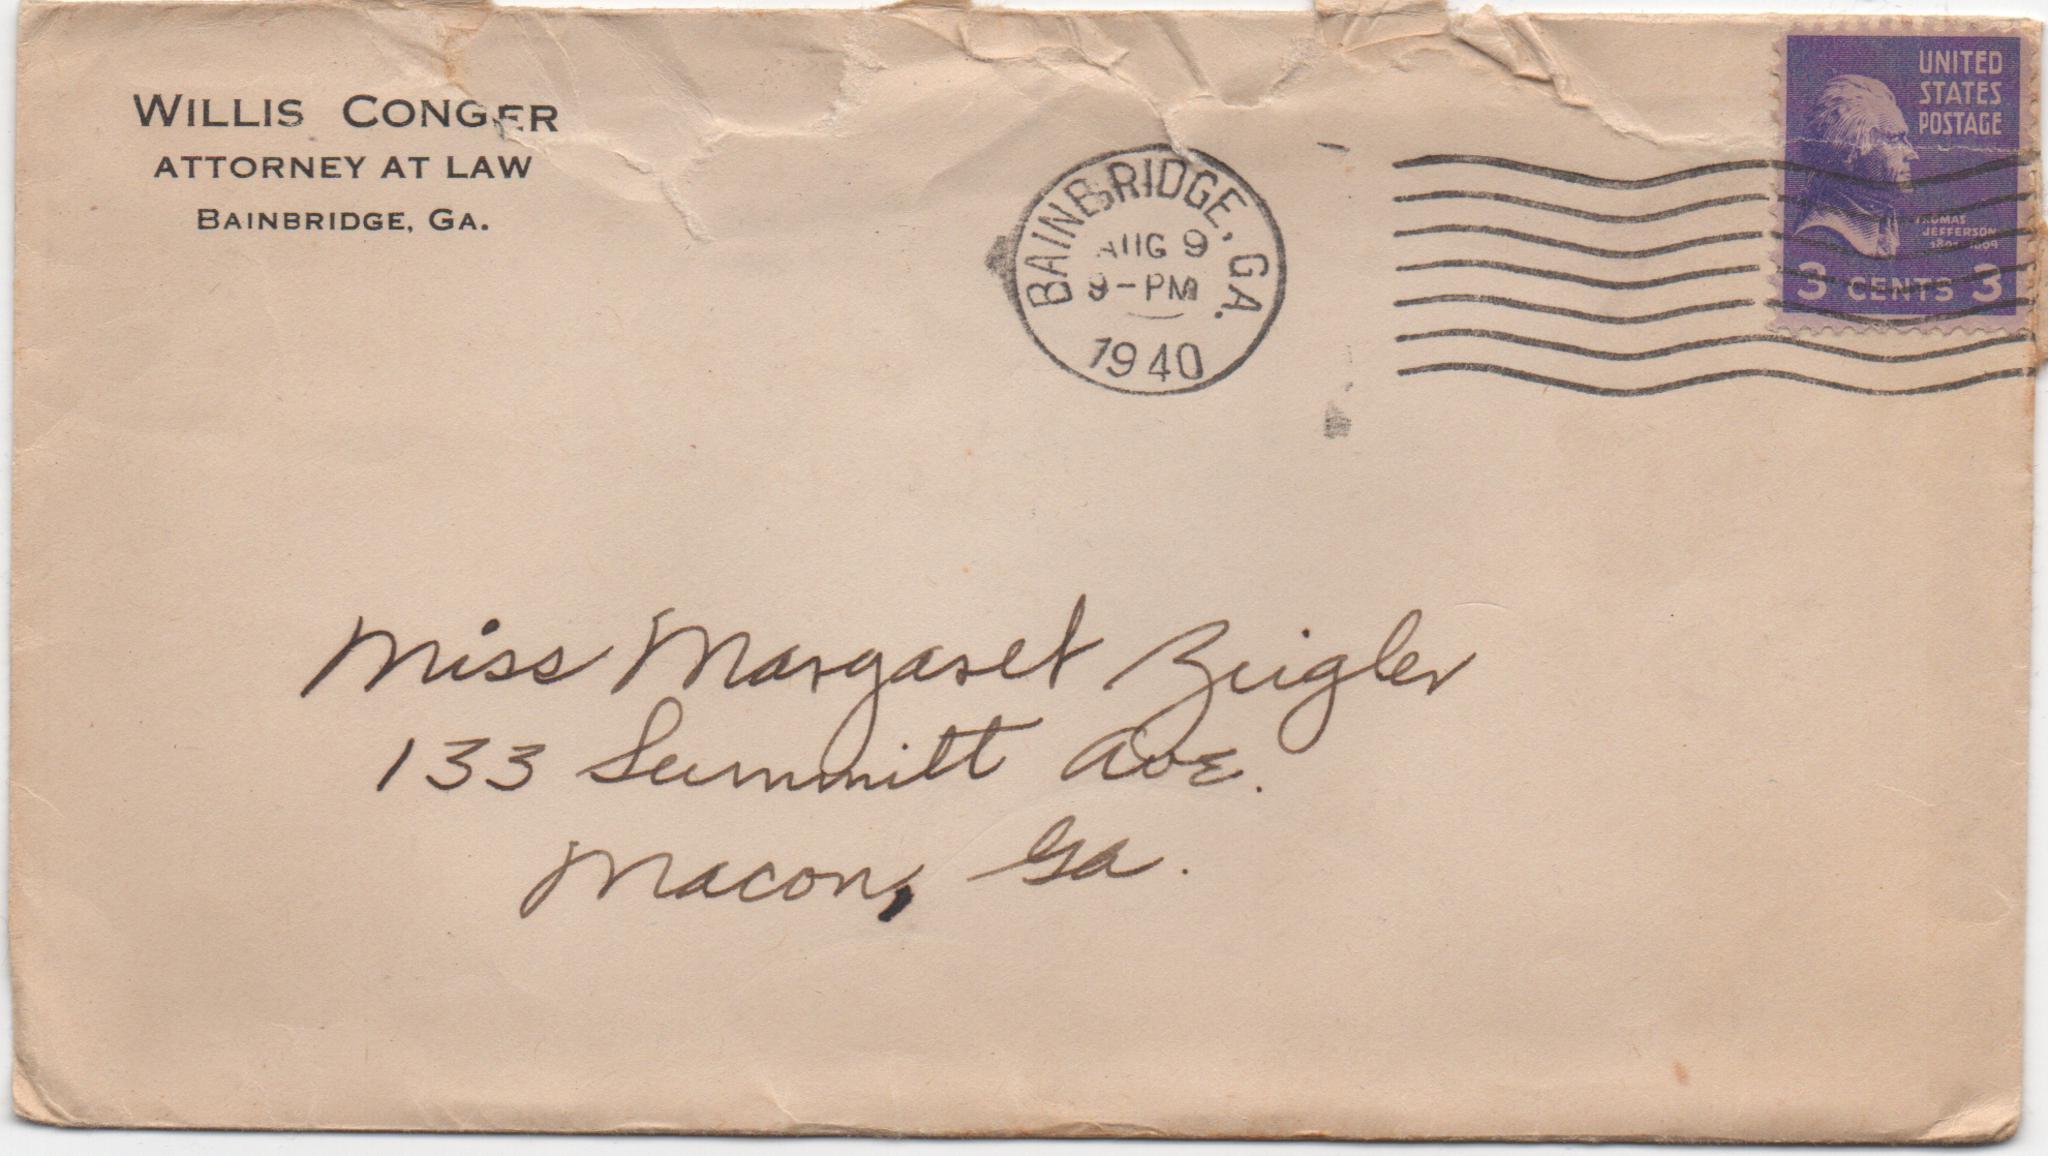 WILLIS CONGER
ATTORNEY AT LAW
BAINBRIDGE, GA.
BAINBRIDGE, GA.
AUG 9
9-PM
1940
UNITED
STATES
POSTAGE
THOMAS
JEFFERSON
1801-1809
3 CENTS 3
Miss Margaret Zeigler
133 Summitt Ave.
Macon, Ga.